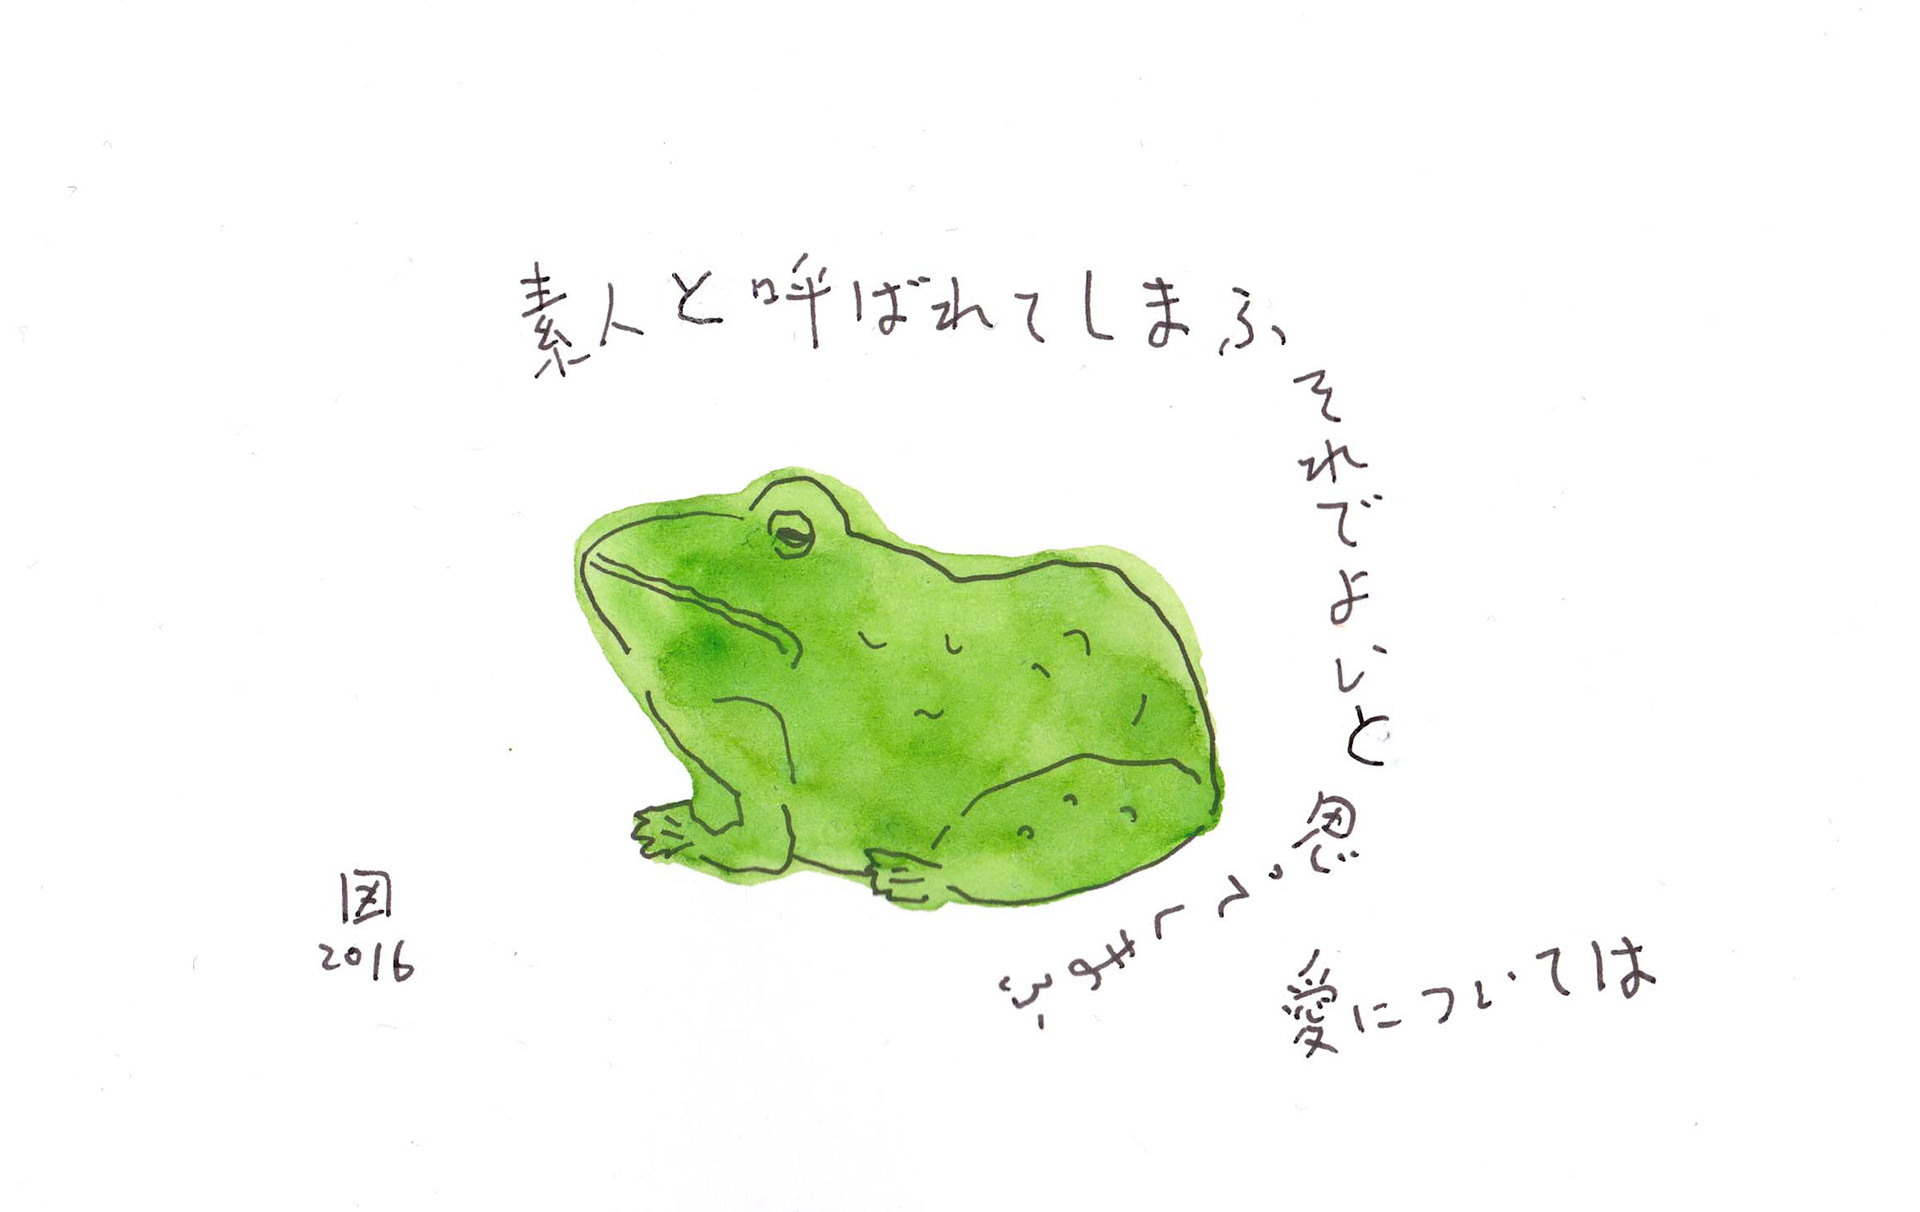 素人と呼ばれてしまふ
それでよいと
思ってしまふ
愛については
図
2016